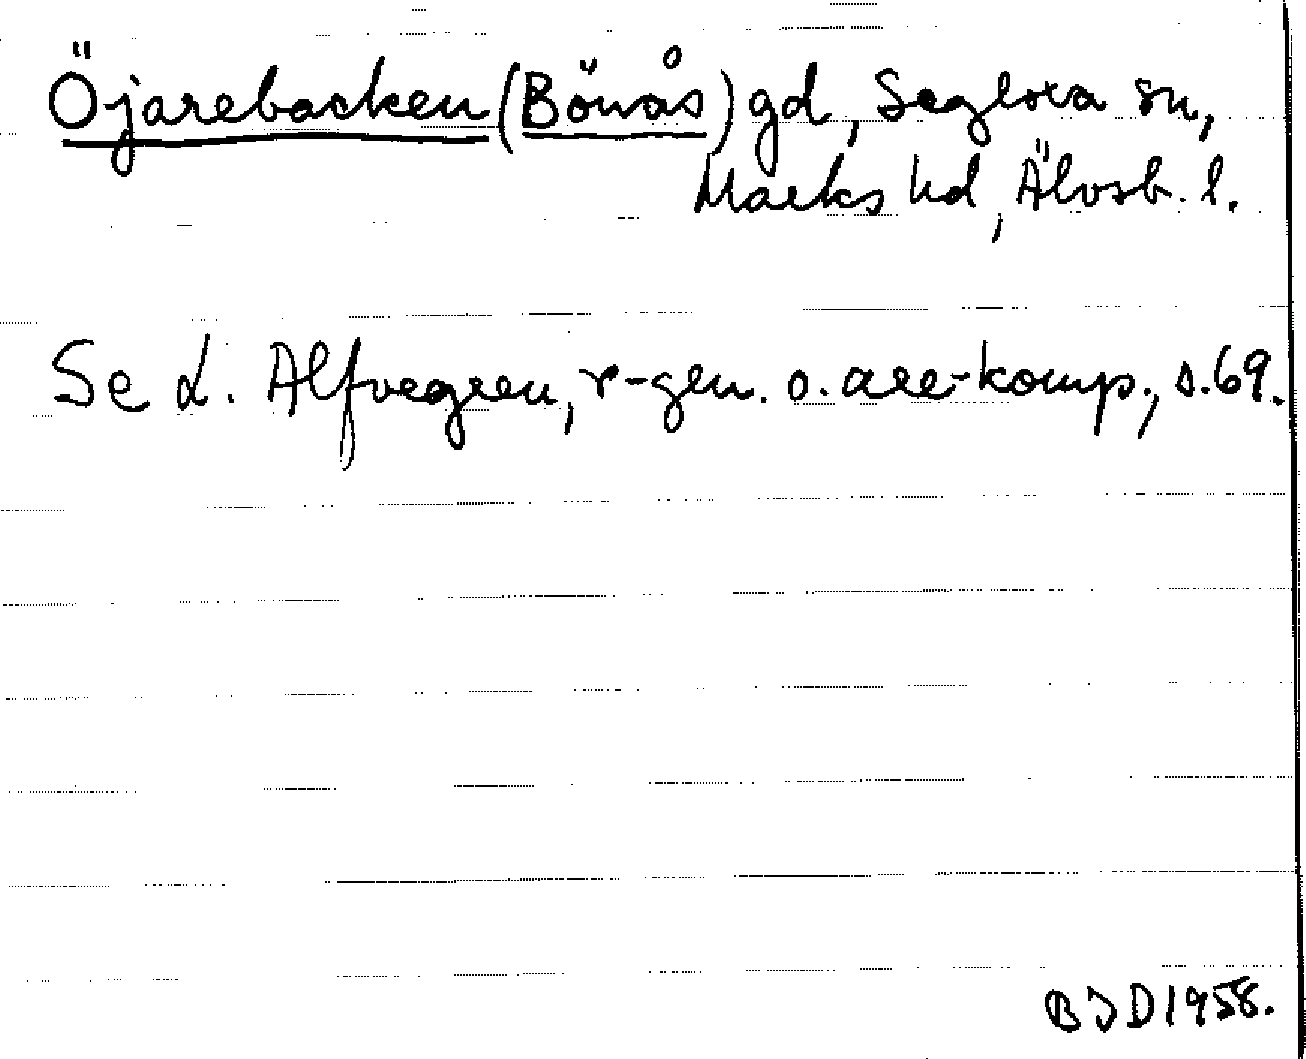 Öjarebacken (Bönås) gd, Seglora sn,
Marks hd, Älvsb. l.
Se L. Alfvegren, r-gen. o. are-komp., s. 69.
BJD 1958.